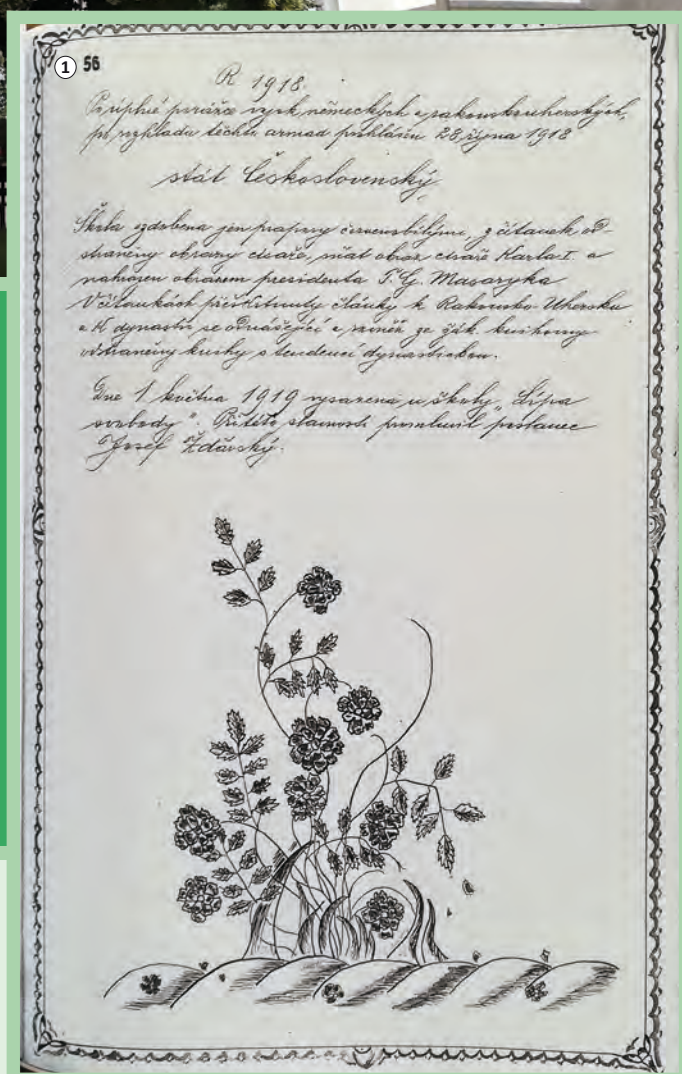 ① 56
R 1918.
Po úplné porážce vojsk německých a rakouskouherských,
po rozkladu těchto armad prohlášen 28 října 1918
stát Československý.
Škola ozdobena jen prapory červenobílými, z čítanek od-
straněny obrazy císaře, sňat obraz císaře Karla I. a
nahrazen obrazem presidenta T. G. Masaryka
V čítankách přeškrtnuty články k Rakousko-Uhersku
a k dynastii se odnášející a rovněž ze žák. knihovny
odstraněny knihy s tendencí dynastickou.
Dne 1 května 1919 vysazena u školy „Lípa
svobody". Při této slavnosti promluvil poslanec
Josef Žďárský.